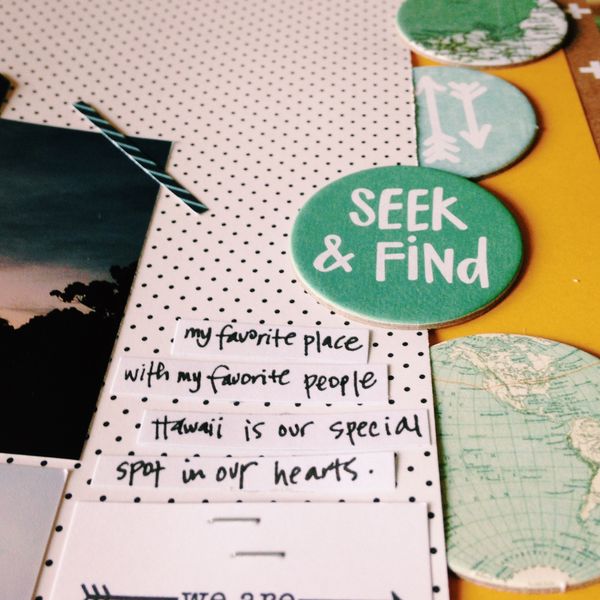 SEEK
& FiNd
my favorite place
with my favorite people
Hawaii is our special
spot in our hearts.
we are